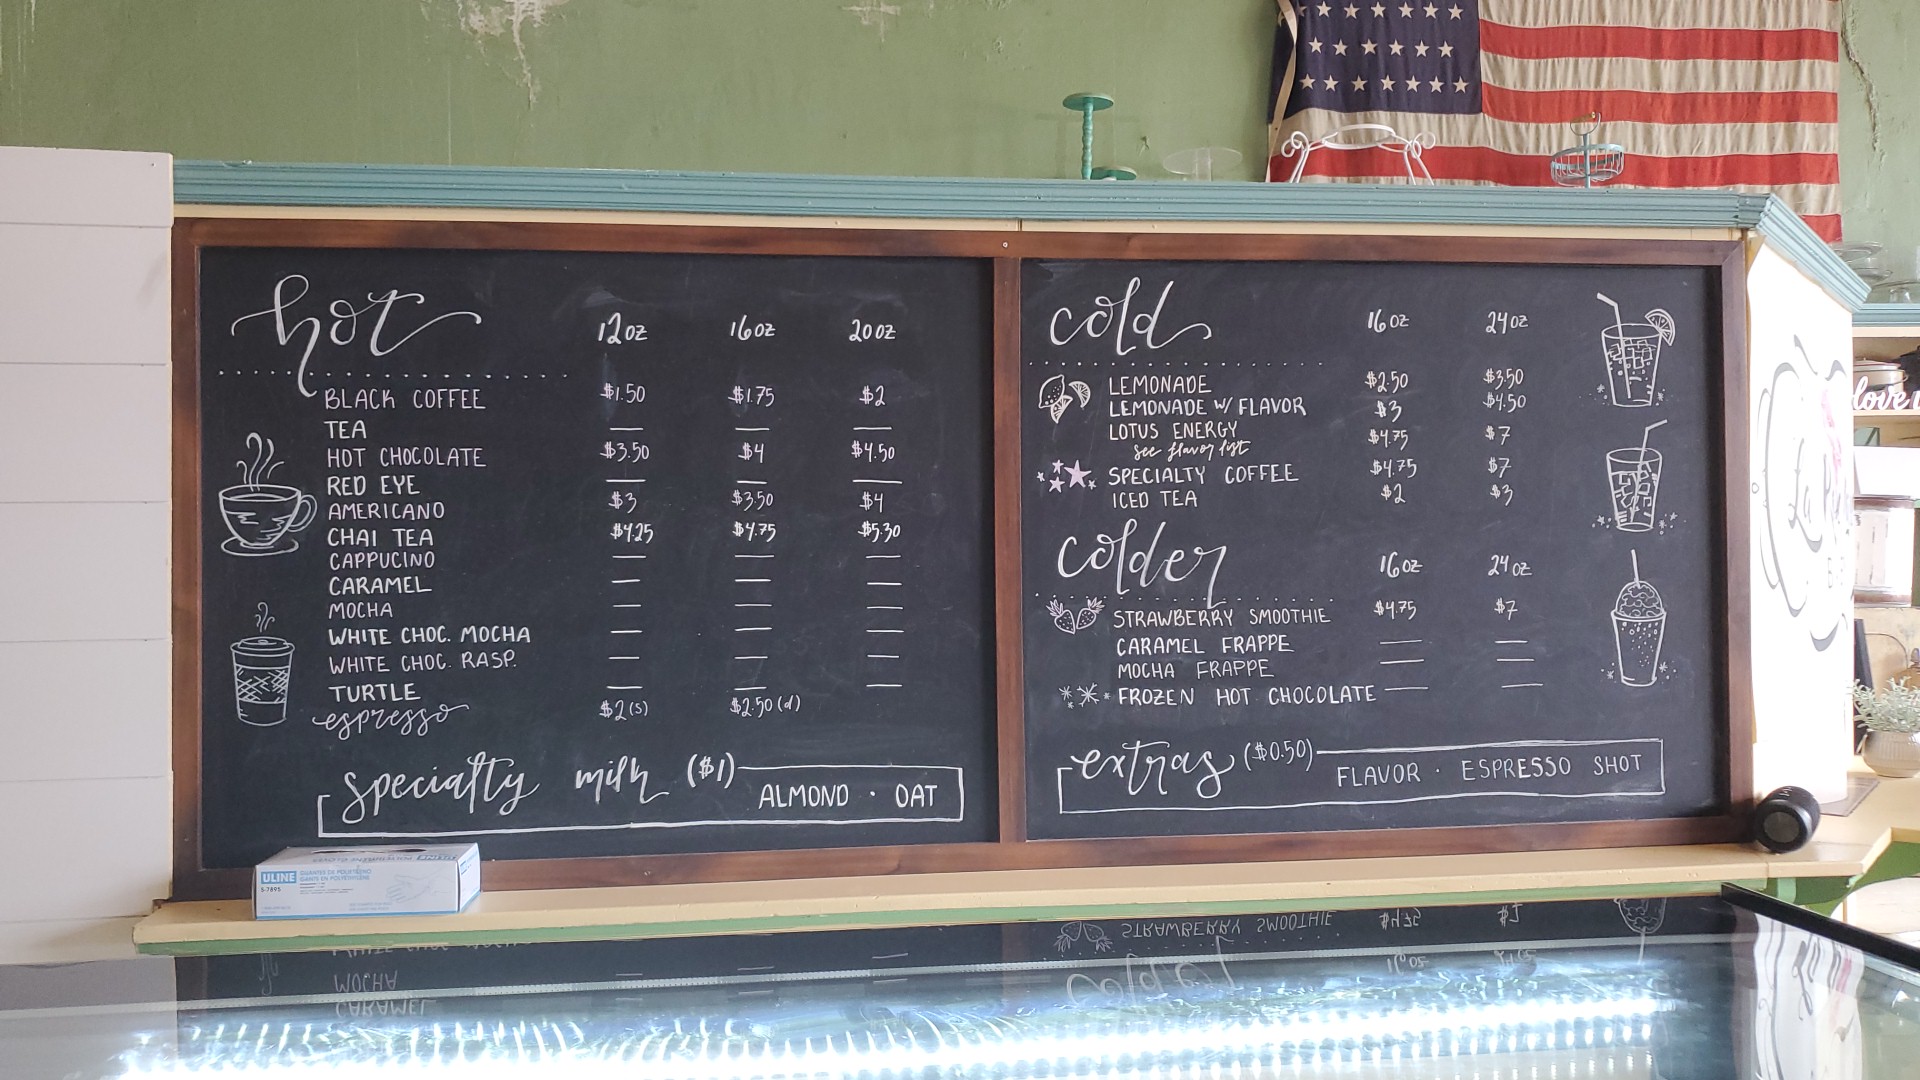 hot 12oz 16oz 20oz
BLACK COFFEE $1.50 $1.75 $2
TEA — — —
HOT CHOCOLATE $3.50 $4 $4.50
RED EYE — — —
AMERICANO $3 $3.50 $4
CHAI TEA $4.25 $4.75 $5.30
CAPPUCINO — — —
CARAMEL — — —
MOCHA — — —
WHITE CHOC. MOCHA — — —
WHITE CHOC. RASP. — — —
TURTLE — — —
espresso $2(s) $2.50(d)
specialty milk ($1) ALMOND · OAT
cold 16oz 24oz
LEMONADE $2.50 $3.50
LEMONADE W/ FLAVOR $3 $4.50
LOTUS ENERGY $4.75 $7
see flavor list
SPECIALTY COFFEE $4.75 $7
ICED TEA $2 $3
colder 16oz 24oz
STRAWBERRY SMOOTHIE $4.75 $7
CARAMEL FRAPPE — —
MOCHA FRAPPE — —
FROZEN HOT CHOCOLATE — —
extras ($0.50) FLAVOR · ESPRESSO SHOT
love
La
ULINE
S-7895
GUANTES DE POLIETILENO
GANTS EN POLYÉTHYLÈNE